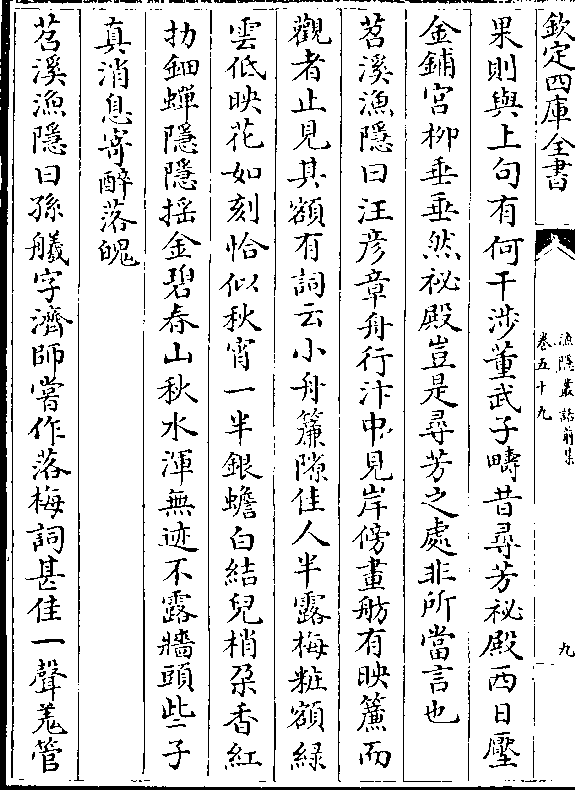 欽定四庫全書
漁隱叢話前集
卷五十九
九
果則與上句有何干涉董武子疇昔尋芳祕殿西日壓
金鋪宮柳垂垂然祕殿豈是尋芳之處非所當言也
苕溪漁隱曰汪彦章舟行汴中見岸傍畫舫有映簾而
觀者止見其額有詞云小舟簾隙佳人半露梅粧額緑
雲低映花如刻恰似秋宵一半銀蟾白結兒梢朶香紅
扐鈿蟬隱隱摇金碧春山秋水渾無迹不露牆頭些子
真消息寄醉落魄
苕溪漁隱曰孫艤字濟師嘗作落梅詞甚佳一聲羗管